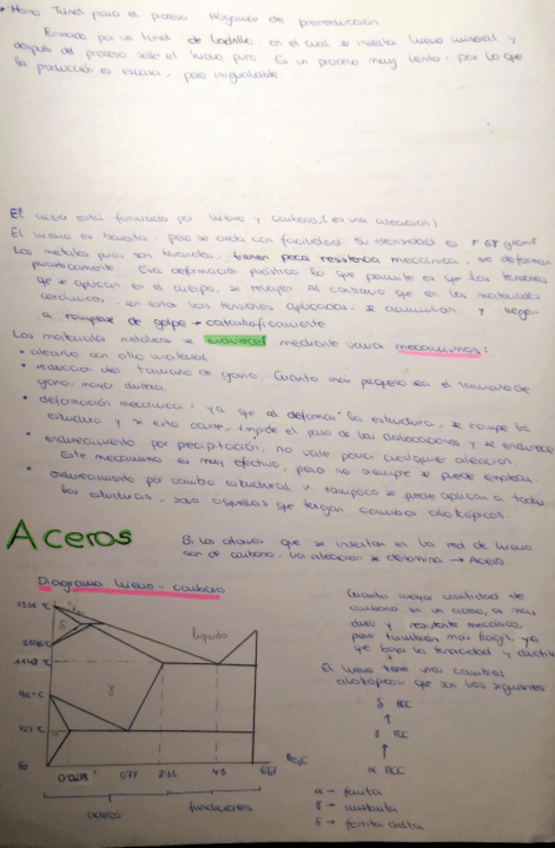 • Horno Tunel para el proceso Höganäs de prerreducción
Formado por un túnel de ladrillo, en el cual se inserta hierro mineral y
después del proceso sale el hierro puro. Es un proceso muy lento, por lo que
la producción es escasa, pero inigualable.
El acero está formado por hierro y carbono, (es una aleación)
El hierro es barato, pero se oxida con facilidad. Su densidad es
Los metales puros son blandos, tienen poca resistencia mecánica, se deforman
plásticamente. Esa deformación plástica lo que permite es que las tensiones
que se aplican en el cuerpo, se relajen. Al contrario que en los materiales
cerámicos, en estos las tensiones aplicadas, se acumulan y llegan
a romperse de golpe → catastróficamente
Los materiales metálicos se endurecen mediante varios mecanismos:
• aleario con otro material.
• reducción del tamaño de grano. Cuanto más pequeño sea el tamaño de
grano, mayor dureza.
• deformación mecánica: ya que al deformar la estructura, se rompe la
estructura y si esto ocurre, impide el paso de las dislocaciones y se endurece
• endurecimiento por precipitación: no vale para cualquier aleación.
Este mecanismo es muy efectivo, pero no siempre se puede emplear.
• endurecimiento por cambio estructural: tampoco se puede aplicar a todas
las estructuras, solo aquellas que tengan cambios alotrópicos.
Aceros
Si los átomos que se insertan en la red de hierro
son de carbono. La aleación se denomina → Acero
Diagrama hierro - carbono
Cuanto mayor cantidad de
carbono en un acero, es más
duro y resistente mecánico,
pero también más frágil ya
que baja la tenacidad y ductili
El hierro tiene unos cambios
alotrópicos que son los siguientes:
δ BCC
↑
γ FCC
↑
α BCC
α → ferrita
γ → austenita
δ → ferrita delta
1148 °C
727 °C
δ
γ
líquido
Fe
0'0218
0'77
2'11
4'3
6'67
Fe₃C
aceros
fundiciones